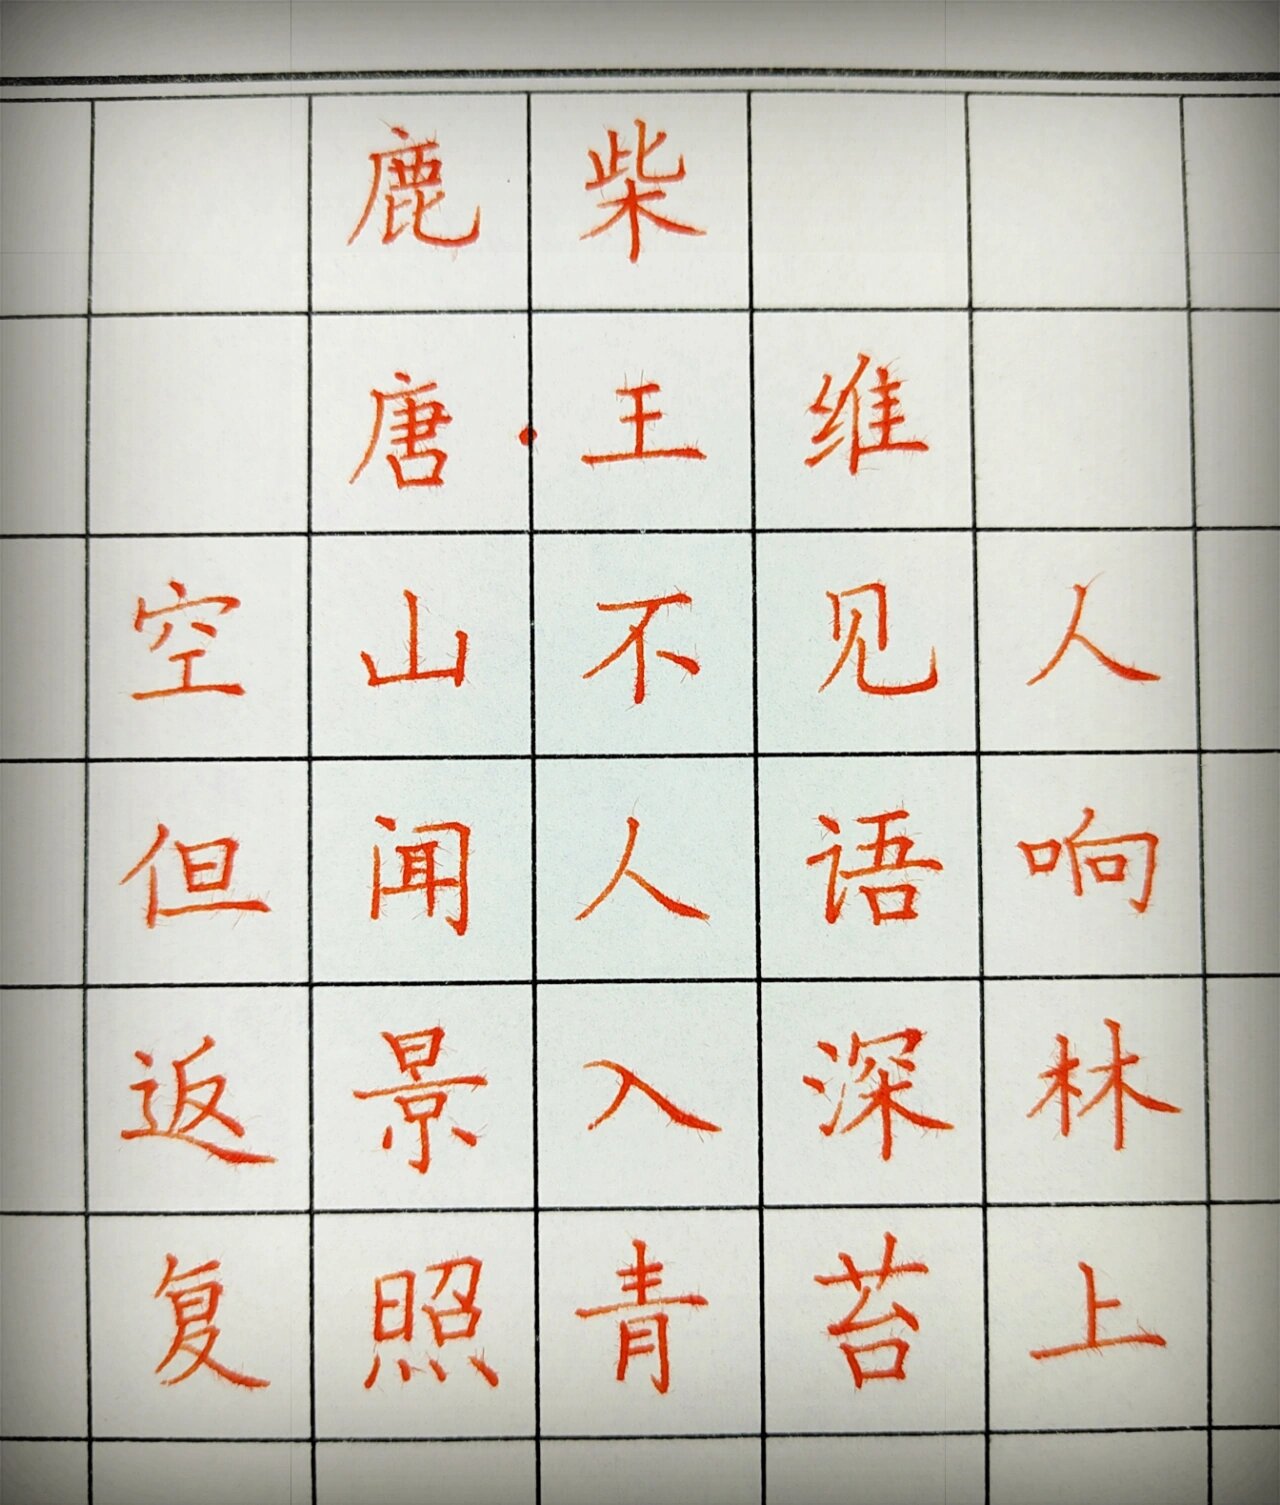 鹿柴
唐·王维
空山不见人
但闻人语响
返景入深林
复照青苔上